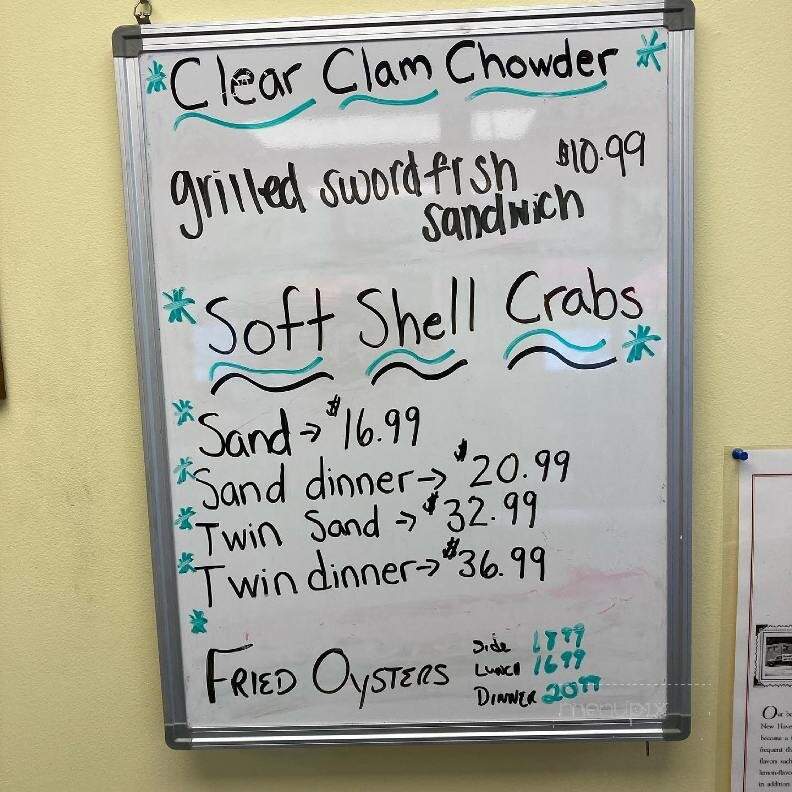 Clear Clam Chowder
grilled swordfish $10.99
sandwich
Soft Shell Crabs
Sand → $16.99
Sand dinner → $20.99
Twin Sand → $32.99
Twin dinner → $36.99
FRIED OYSTERS
Side 18 99
LUNCH 16 99
DINNER 20 99
menupix
New Have
become a
frequent th
flavors such
lemon-flavo
in addition